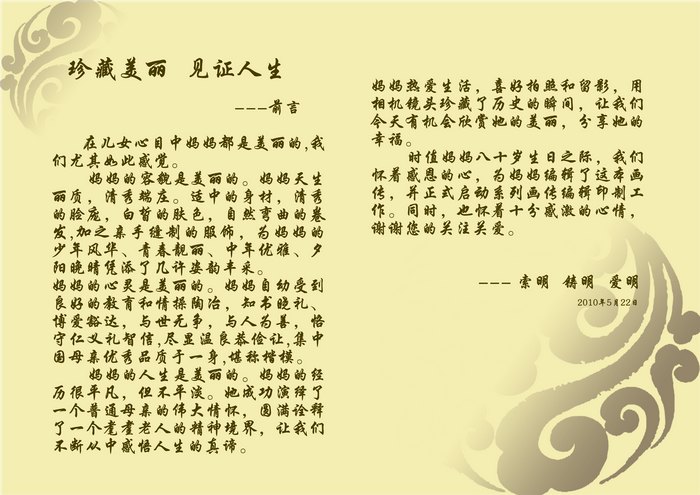 珍藏美丽 见证人生
---前言
在儿女心目中妈妈都是美丽的,我
们尤其如此感觉。
妈妈的容貌是美丽的。妈妈天生
丽质，清秀端庄。适中的身材，清秀
的脸庞，白皙的肤色，自然弯曲的卷
发,加之亲手缝制的服饰，为妈妈的
少年风华、青春靓丽、中年优雅、夕
阳晚晴凭添了几许姿韵丰采。
妈妈的心灵是美丽的。妈妈自幼受到
良好的教育和情操陶冶，知书晓礼、
博爱豁达，与世无争，与人为善，恪
守仁义礼智信,尽显温良恭俭让,集中
国母亲优秀品质于一身,堪称楷模。
妈妈的人生是美丽的。妈妈的经
历很平凡，但不平淡。她成功演绎了
一个普通母亲的伟大情怀，圆满诠释
了一个耄耋老人的精神境界，让我们
不断从中感悟人生的真谛。
妈妈热爱生活，喜好拍照和留影，用
相机镜头珍藏了历史的瞬间，让我们
今天有机会欣赏她的美丽，分享她的
幸福。
时值妈妈八十岁生日之际，我们
怀着感恩的心，为妈妈编辑了这本画
传，并正式启动系列画传编辑印制工
作。同时，也怀着十分感激的心情，
谢谢您的关注关爱。
--- 索明 铸明 爱明
2010年5月22日